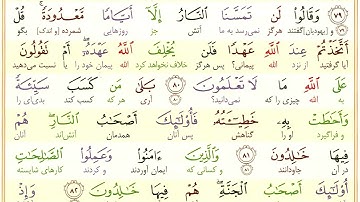 ٧٩ وَقَالُوا لَن تَمَسَّنَا النَّارُ إِلَّآ أَيَّامًا مَّعْدُودَةً قُلْ
٧٩ و (یهودیان) گفتند هرگز نمی‌رسد به ما آتش جز روزهایی شمرده (و اندک) بگو
أَتَّخَذْتُمْ عِندَ اللَّهِ عَهْدًا فَلَن يُخْلِفَ اللَّهُ عَهْدَهُ أَمْ تَقُولُونَ
آیا گرفتید از نزد الله پیمانی؟ پس هرگز خلاف نخواهد کرد الله پیمان خود را یا نسبت می‌دهید
عَلَى اللَّهِ مَا لَا تَعْلَمُونَ ٨٠ بَلَى مَن كَسَبَ سَيِّئَةً
به الله چیزی را که نمی‌دانید؟ ٨٠ آری هر که کسب کند بدی‌ای را
وَأَحَاطَتْ بِهِ خَطِيئَتُهُ فَأُولَئِكَ أَصْحَابُ النَّارِ هُمْ
و فراگیرد او را گناهش پس آنان همدمان آتش‌اند آنان
فِيهَا خَالِدُونَ ٨١ وَالَّذِينَ ءَامَنُوا وَعَمِلُوا الصَّالِحَاتِ
در آن جاودانند ٨١ و کسانی که ایمان آوردند و کردند کارهای شایسته
أُولَئِكَ أَصْحَابُ الْجَنَّةِ هُمْ فِيهَا خَالِدُونَ ٨٢ وَإِذْ